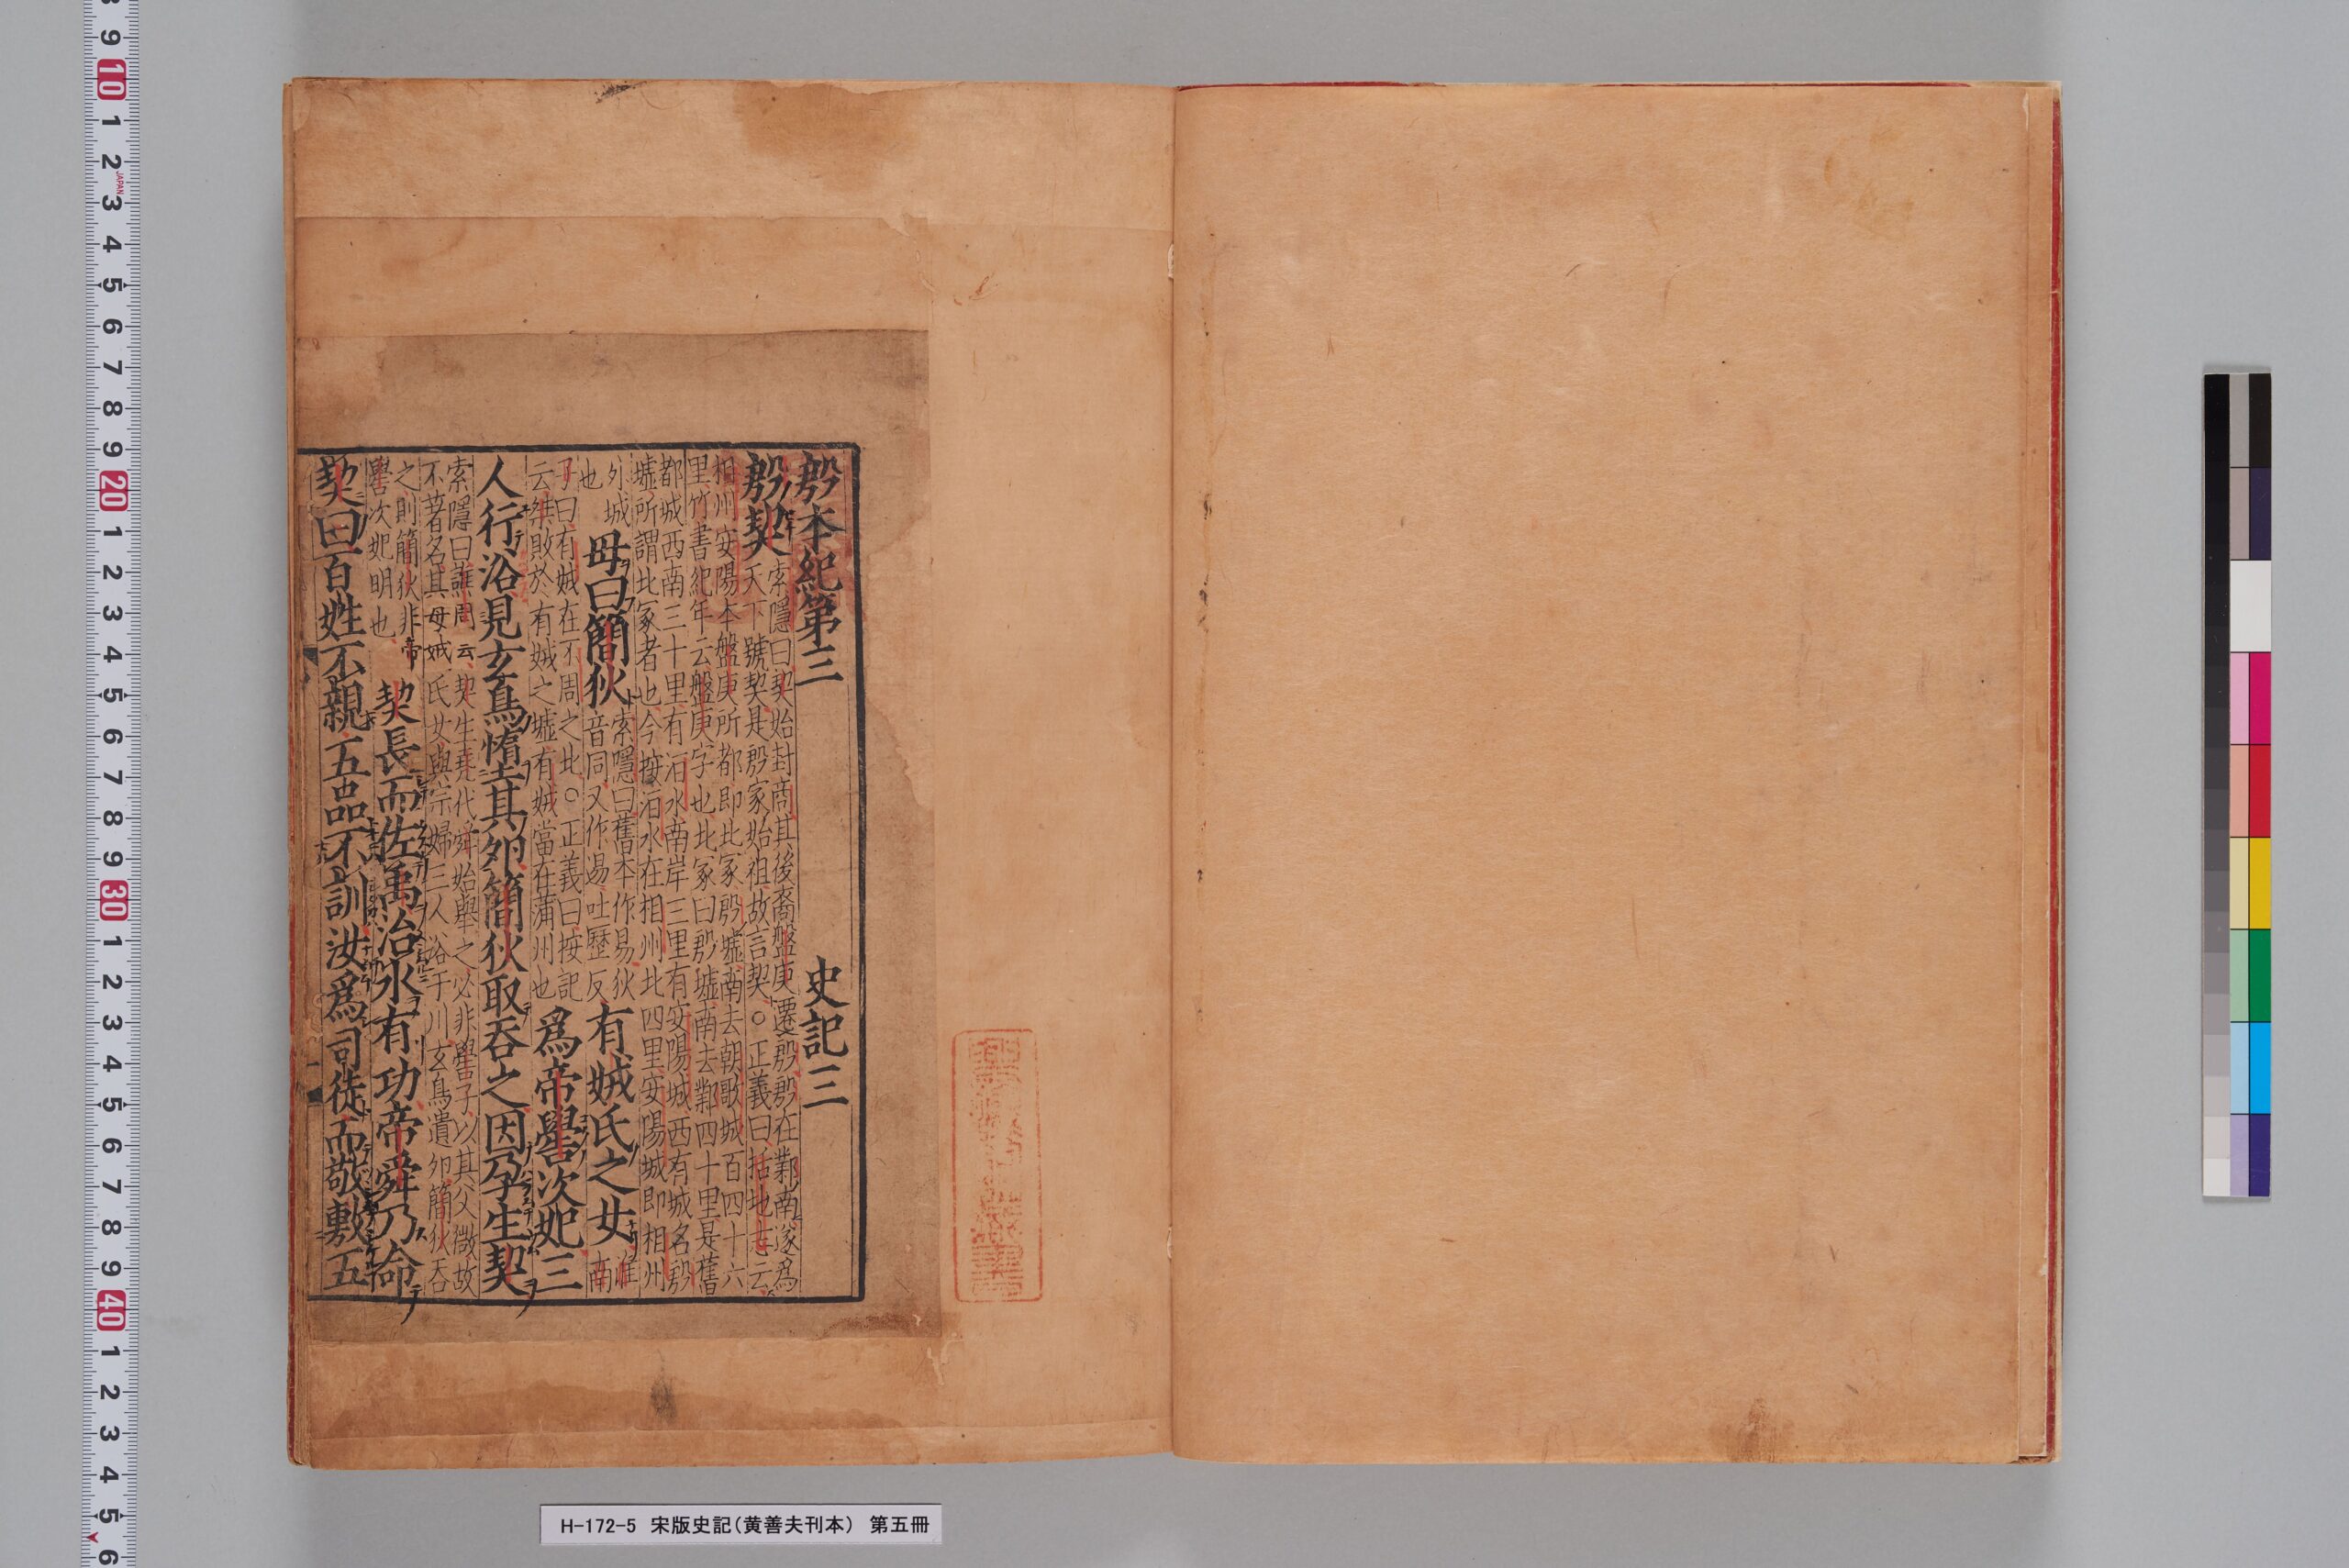 殷本紀第三 史記三
殷契 索隱曰契始封商其後裔盤庚遷殷殷在鄴南遂爲
天下號契是殷家始祖故言契○正義曰括地志云
相州安陽本盤庚所都即北冢殷墟南去朝歌城百四十六
里竹書紀年云盤庚字也北冢曰殷墟南去鄴四十里是舊
都城西南三十里有洹水南岸三里有安陽城西有城名殷
墟所謂北冢者也今按洹水在相州北四里安陽城即相州
外城也 母曰簡狄 索隱曰舊本作易狄
音同又作逷吐歷反 有娀氏之女 淮南
子曰有娀在不周之北○正義曰按記
云桀敗於有娀之墟有娀當在蒲州也 爲帝嚳次妃三
人行浴見玄鳥墮其卵簡狄取吞之因孕生契
索隱曰譙周云契生堯代舜始舉之必非嚳子以其父微故
不著名其母娀氏女與宗婦三人浴于川玄鳥遺卵簡狄吞
之則簡狄非帝
嚳次妃明也 契長而佐禹治水有功帝舜乃命
契曰百姓不親五品不訓汝爲司徒而敬敷五
H-172-5 宋版史記(黄善夫刊本) 第五冊
JAPAN